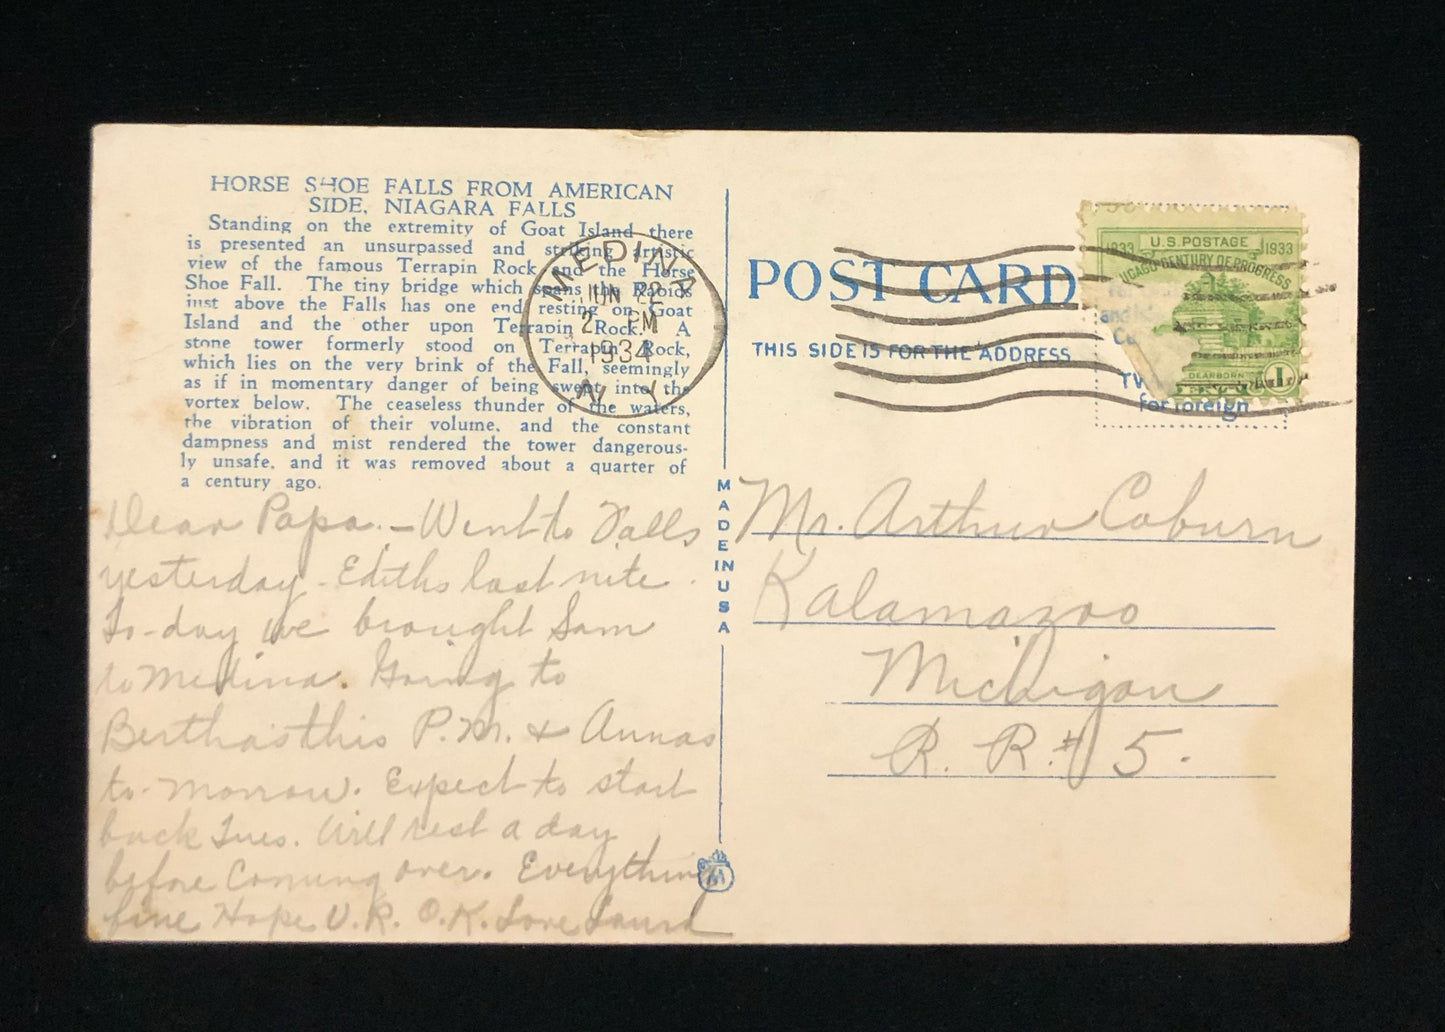 HORSE SHOE FALLS FROM AMERICAN
SIDE, NIAGARA FALLS
Standing on the extremity of Goat Island there
is presented an unsurpassed and striking artistic
view of the famous Terrapin Rock and the Horse
Shoe Fall. The tiny bridge which spans the Rapids
just above the Falls has one end resting on Goat
Island and the other upon Terrapin Rock. A
stone tower formerly stood on Terrapin Rock,
which lies on the very brink of the Fall, seemingly
as if in momentary danger of being swept into the
vortex below. The ceaseless thunder of the waters,
the vibration of their volume, and the constant
dampness and mist rendered the tower dangerous-
ly unsafe, and it was removed about a quarter of
a century ago.
MEDINA
JUN 22
2 PM
1934
N. Y.
Dear Papa. - Went to Falls
yesterday - Ediths last nite.
To-day we brought Sam
to Medina. Going to
Berthas this P.M. & Annas
to-morrow. Expect to start
back Tues. Will rest a day
before Coming over. Everything
fine Hope U.R. O.K. Love Laura
MADE IN USA
POST CARD
THIS SIDE IS FOR THE ADDRESS
1933 U.S. POSTAGE 1933
CENTURY OF PROGRESS
DEARBORN
1
for foreign
Mr. Arthur Coburn
Kalamazoo
Michigan
R. R. # 5.